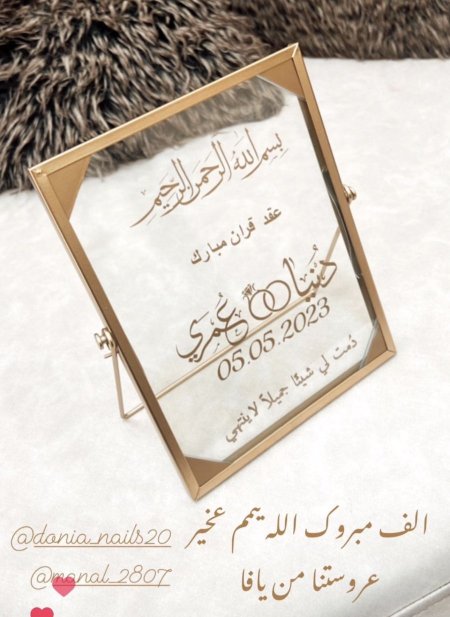 بسم الله الرحمن الرحيم
عقد قران مبارك
دُنيا عُمري
05.05.2023
دُمت لي شيئًا جميلاً لا ينتهي
الف مبروك الله يمم عخير @donia_nails20
عروستنا من يافا @manal_2807